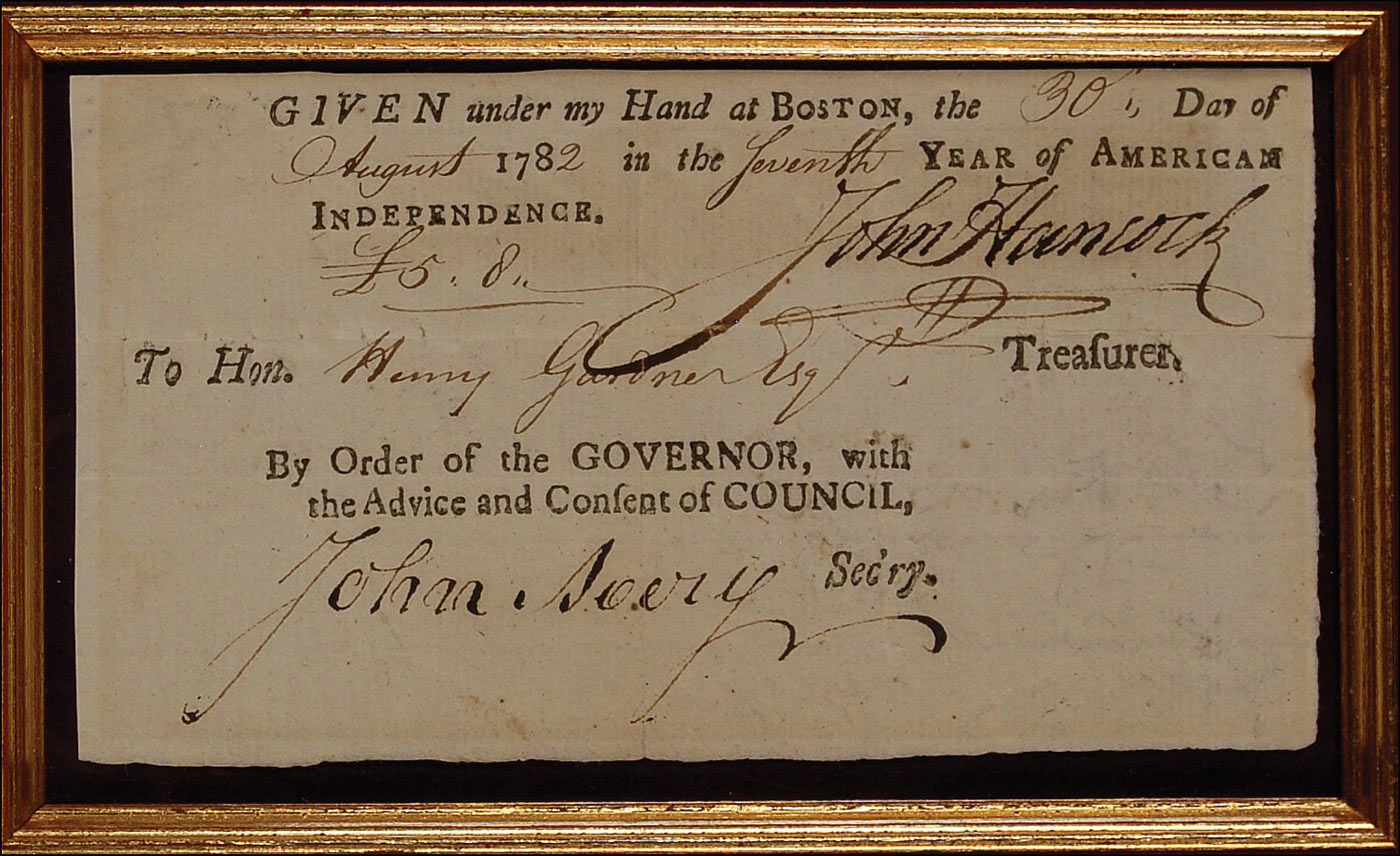 GIVEN under my Hand at BOSTON, the 30th Day of
August 1782 in the seventh YEAR of AMERICAN
INDEPENDENCE.
John Hancock
£5. 8..
To Hon. Henry Gardner Esqr. Treaſurer.
By Order of the GOVERNOR, with
the Advice and Conſent of COUNCIL,
John Avery Sec'ry.